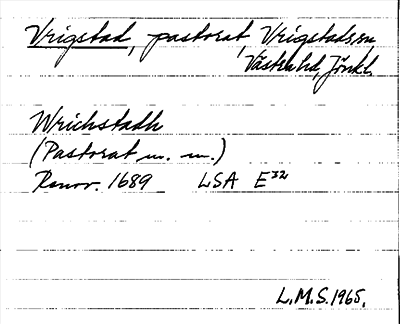 Vrigstad, pastorat, Vrigstads sn
Västra hd, Jönk.
Wrichstadh
(Pastorat m. m.)
Renov. 1689 LSA E32
L.M.S. 1965.